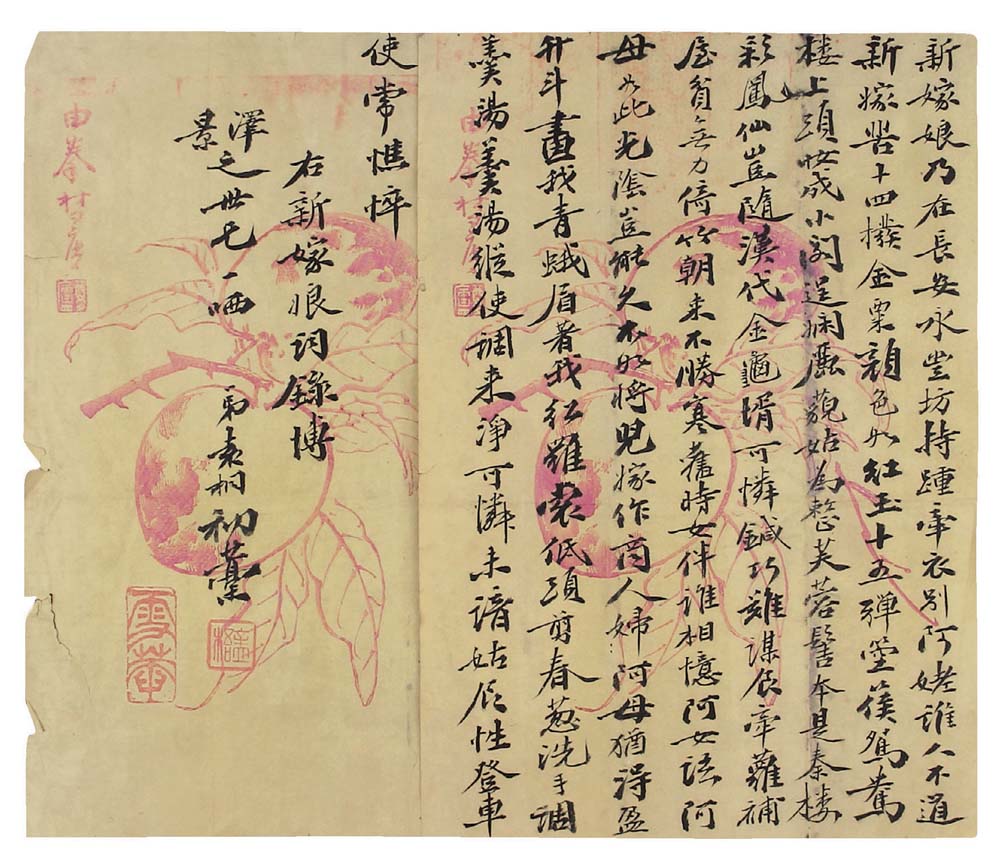 新嫁娘乃在長安永豐坊持踵牽衣別阿姥誰人不道
新嫁苦十四檏金粟顏色如紅玉十五彈箜篌鴛鴦
樓上頭妝成小閣逞嫻麗藐姑為整芙蓉髻本是秦樓
彩鳳仙豈隨漢代金龜壻可憐鍼巧難謀食牽蘿補
屋貧無力倚竹朝來不勝寒舊時女伴誰相憶阿女語阿
母如此光陰豈能久不如將兒嫁作商人婦阿母猶得盈
升斗畫我青蛾眉著我紅羅裳低頭剪春葱洗手調
羹湯羹湯縱使調來淨可憐未諳姑食性登車
使常憔悴
右新嫁娘詞錄博
澤之世兄一哂 弟袁桐初藁
景
由拳村
由拳村